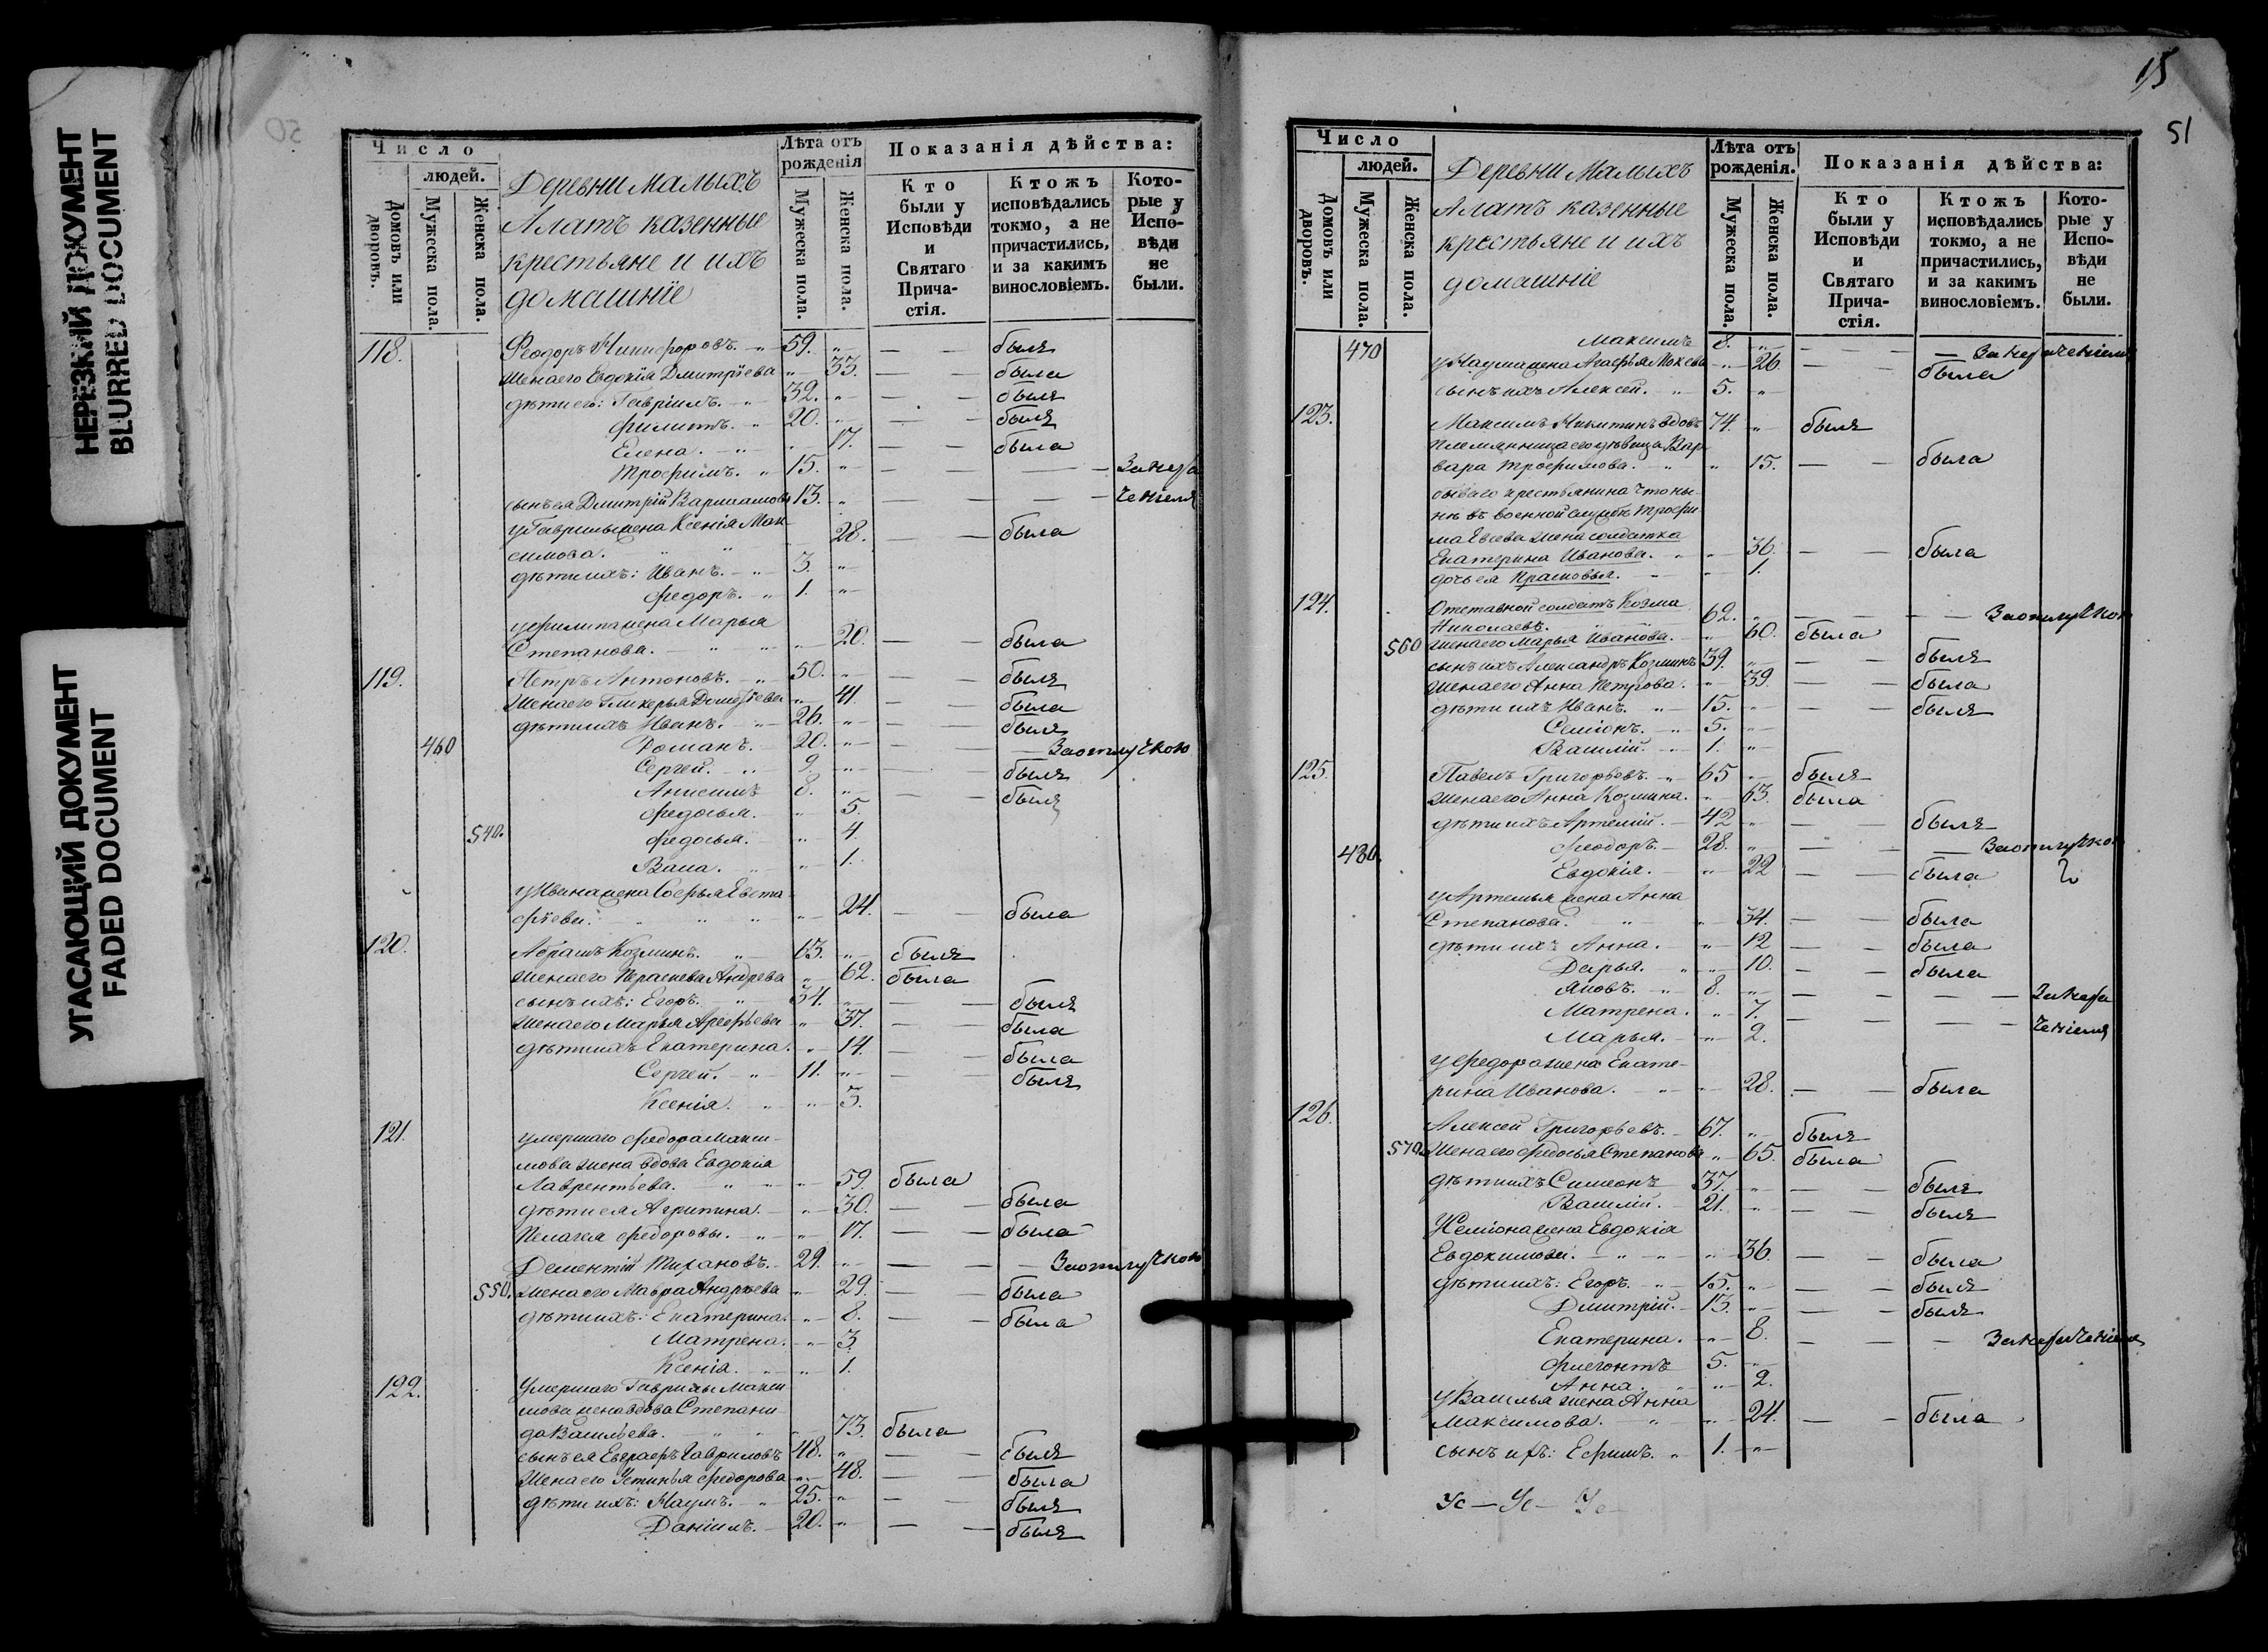 НЕРЕЗКИЙ ДОКУМЕНТ
BLURRED DOCUMENT
УГАСАЮЩИЙ ДОКУМЕНТ
FADED DOCUMENT
Число
людей.
Домовъ или дворовъ.
Мужеска пола.
Женска пола.
Деревни Малыхъ
Алатъ казенные
крестьяне и ихъ
домашніе
Лѣта отъ рожденія
Мужеска пола.
Женска пола.
Показанія дѣйства:
Кто были у Исповѣди и Святаго Прича-стія.
Ктожъ исповѣдались токмо, а не причастились, и за какимъ винословіемъ.
Кото-рые у Испо-вѣди не были.
118. Феодоръ Никифоровъ. 59. былъ
Жена его Евдокія Дмитріева 53. была
дѣти его: Гавріилъ. 32. былъ
Филиппъ. 20. былъ
Елена. 17. была
Трофимъ. 15. За нера
сынъ ея Дмитрій 13. ченіемъ
у Гавріилы жена Ксенія Мак-
симова. 28. была
дѣти ихъ: Иванъ. 3.
Федоръ. 1.
у Филипа жена Марья
Степанова. 20. была
119. Петръ Антоновъ. 50. былъ
Жена его Гликерья 41. была
дѣти ихъ Иванъ. 26. былъ
460 Романъ. 20. За отлучкою
Сергей. 9. былъ
Анисимъ 8. былъ
Федосья. 5.
540. Федосья. 4.
1.
у Ивана жена Софья Евста-
фіева. 24. была
120. Абрамъ Козминъ. 63. былъ
Жена его 62. была
сынъ ихъ: Егоръ. 34. былъ
Жена его Марья 37. была
дѣти ихъ Екатерина. 14. была
Сергей. 11. былъ
Ксенія. 3.
121. умершаго Федора Макси-
мова жена вдова Евдокія
Лаврентьева. 59. была
дѣти ея Агрипина. 30. была
Пелагея Федоровы. 17. была
Дементій 29. За отлучкою
550. Жена его Мавра Андреева 29. была
дѣти ихъ: Екатерина. 8. была
Матрена. 3.
Ксенія. 1.
122. Умершаго Гаврилы Макси
мова жена вдова Степани-
да Васильева. 73. была
сынъ ея Евграфъ Гавриловъ 48. былъ
Жена его Устинья Федорова 48. была
дѣти ихъ: Наумъ. 25. былъ
Даніилъ. 20. былъ
15
51
Число
людей.
Домовъ или дворовъ.
Мужеска пола.
Женска пола.
Деревни Малыхъ
Алатъ казенные
крестьяне и ихъ
домашніе
Лѣта отъ рожденія.
Мужеска пола.
Женска пола.
Показанія дѣйства:
Кто были у Исповѣди и Святаго Прича-стія.
Ктожъ исповѣдались токмо, а не причастились, и за какимъ винословіемъ.
Кото-рые у Испо-вѣди не были.
470 Максимъ 8. За нераченіемъ
у Наума жена Агафья 26. была
сынъ ихъ Алексей. 5.
123. Максимъ Никитинъ вдовъ 74. былъ
Племянница его дѣвица Вар-
вара Трофимова. 15. была
бывшаго крестьянина что ны-
нѣ въ военной службѣ Трофи-
ма Евсева жена солдатка
Екатерина Иванова. 36. была
дочь ея Прасковья. 1.
124. Отставной солдатъ Козма
Николаевъ. 62. За отлучкою
560 Жена его Марья Иванова. 60. была
сынъ ихъ Александръ Козминъ 39. былъ
Жена его Анна Петрова. 39. была
дѣти ихъ Иванъ. 15. былъ
Семіонъ. 5.
Василій. 1.
125. Павелъ Григорьевъ. 65 былъ
Жена его Анна Козмина. 63. была
дѣти ихъ Артемій. 42 былъ
480. Феодоръ. 28. За отлучкою
Евдокія. 22 была
у Артемья жена Анна
Степанова. 34. была
дѣти ихъ Анна. 12 была
Дарья. 10. была
Яковъ. 8. За нера
Матрена. 7. ченіемъ
Марья. 2.
у Федора жена Екате-
рина Иванова. 28. была
126. Алексей Григорьевъ. 67. былъ
570. Жена его Федосья Степанова 65. была
дѣти ихъ Симеонъ 37. былъ
Василій. 21. былъ
У Семіона жена Евдокія
Евдокимова. 36. была
дѣти ихъ: Егоръ. 15. былъ
Дмитрій. 13. былъ
Екатерина. 8. За нераченіемъ
Флегонтъ 5.
Анна. 2.
у Василья жена Анна
Максимова. 24. была
сынъ ихъ: Ефимъ. 1.